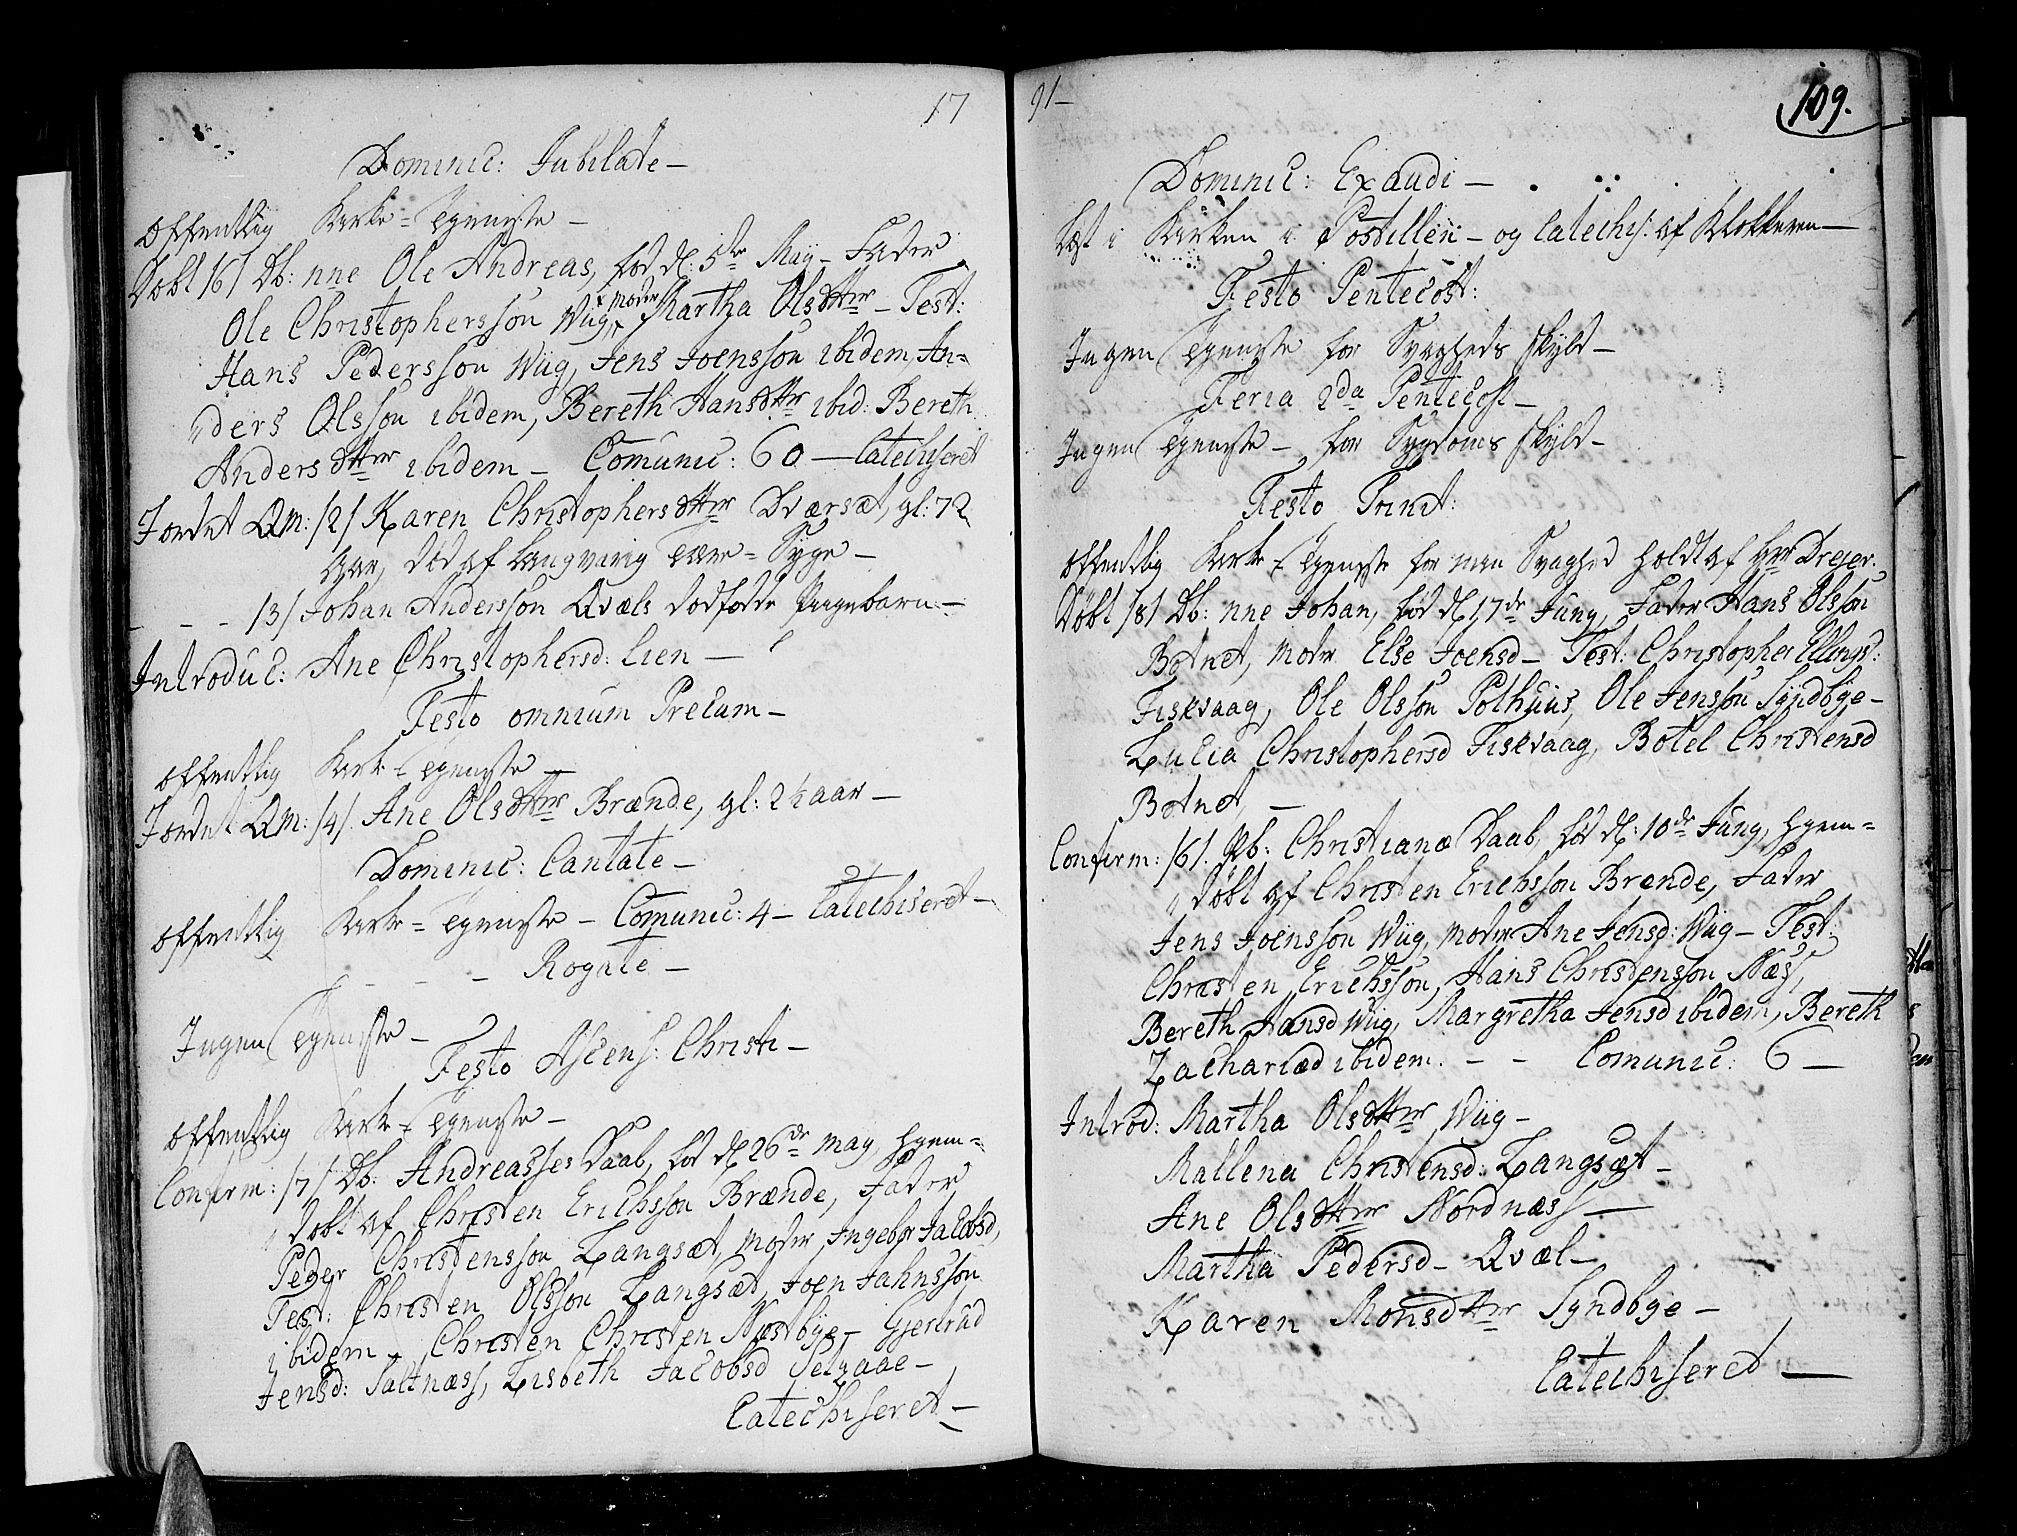 17
Dominic: Jubilate —
Offentlig Kirke-Tjeneste —
Døbt /6/ Db: nne Ole Andreas, fød d: 5te Maij — Fader
Ole Christophersson Wiig, Moder Martha Olsdttr — Test:
Hans Pedersson Wiig, Jens Joensson ibidem, An-
ders Olsson ibidem, Bereth Hansdttr ibid: Bereth
Andersdttr ibidem — Comunic: 60 — Catechiseret
Jordet QM: /2/ Karen Christophersdttr Dværsæt, gl: 72
Aar, død af langvarig Tære-Syge —
— — /3/ Johan Andersson Qvæls dødfødde Pigebarn —
Introduc: Ane Christophersd: Lien —
Festo omnium Precum —
Offentlig Kirke-Tjeneste —
Jordet QM: /4/ Ane Olsdttr Brænde, gl: 2½ aar —
Dominic: Cantate —
Offentlig Kirke-Tjeneste — Comunic: 4 — Catechiseret —
— — — Rogate —
Ingen Tjeneste —
Festo Ascens: Christi —
Offentlig Kirke-Tjeneste —
Confirm: /7/ Db: Andreasses Daab, fød d 26de May, hjem-
døbt af Christen Erichsson Brænde, Fader
Peder Christensson Langsæt, Moder Ingebor Jacobsd,
Test: Christen Olsson Langsæt, Joen Jahnsson
ibidem — Christen Christen Næstbye — Gjertrud
Jensd: Saltnæss, Lisbeth Jacobsd Selvaae —
Catechiseret —
91 —
109.
Dominic: Exaudi —
Læst i Kirken i Postillen — og Catechis: af Klokkeren —
Festo Pentecost:
Ingen Tjeneste for Svagheds skyld —
Feria 2da Pentecost —
Ingen Tjeneste — for Sygdoms skyld —
Festo Trinit:
Offentlig Kirke-Tjeneste for min Svaghed holdt af Hr Dreier.
Døbt /8/ Db: nne Johan, fød d 17de Juny, Fader Hans Olsson
Botnet, Moder Else Joensd — Test: Christopher Ellings:
Fiskvaag, Ole Olsson Polhuus, Ole Jensson Syndbye —
Lucia Christophersd Fiskvaag, Botel Christensd
Botnet, —
Confirm: /6/ Pb: Christianæ Daab, fød d: 10de Juny, hjem-
døbt af Christen Erichsson Brænde, Fader
Jens Joensson Wiig, Moder Ane Jensd: Wiig — Test:
Christen Erichsson, Hans Christensson Næss,
Bereth Hansd Wiig, Margretha Jensd ibidem, Bereth
Zachariæd ibidem. — — Comunic: 6 —
Introd: Martha Olsdttr Wiig —
Mallena Christensd: Langsæt —
Ane Olsdttr Nordnæss —
Martha Pedersd — Qvæl —
Karen Monsdttr Syndbye —
Catechiseret —